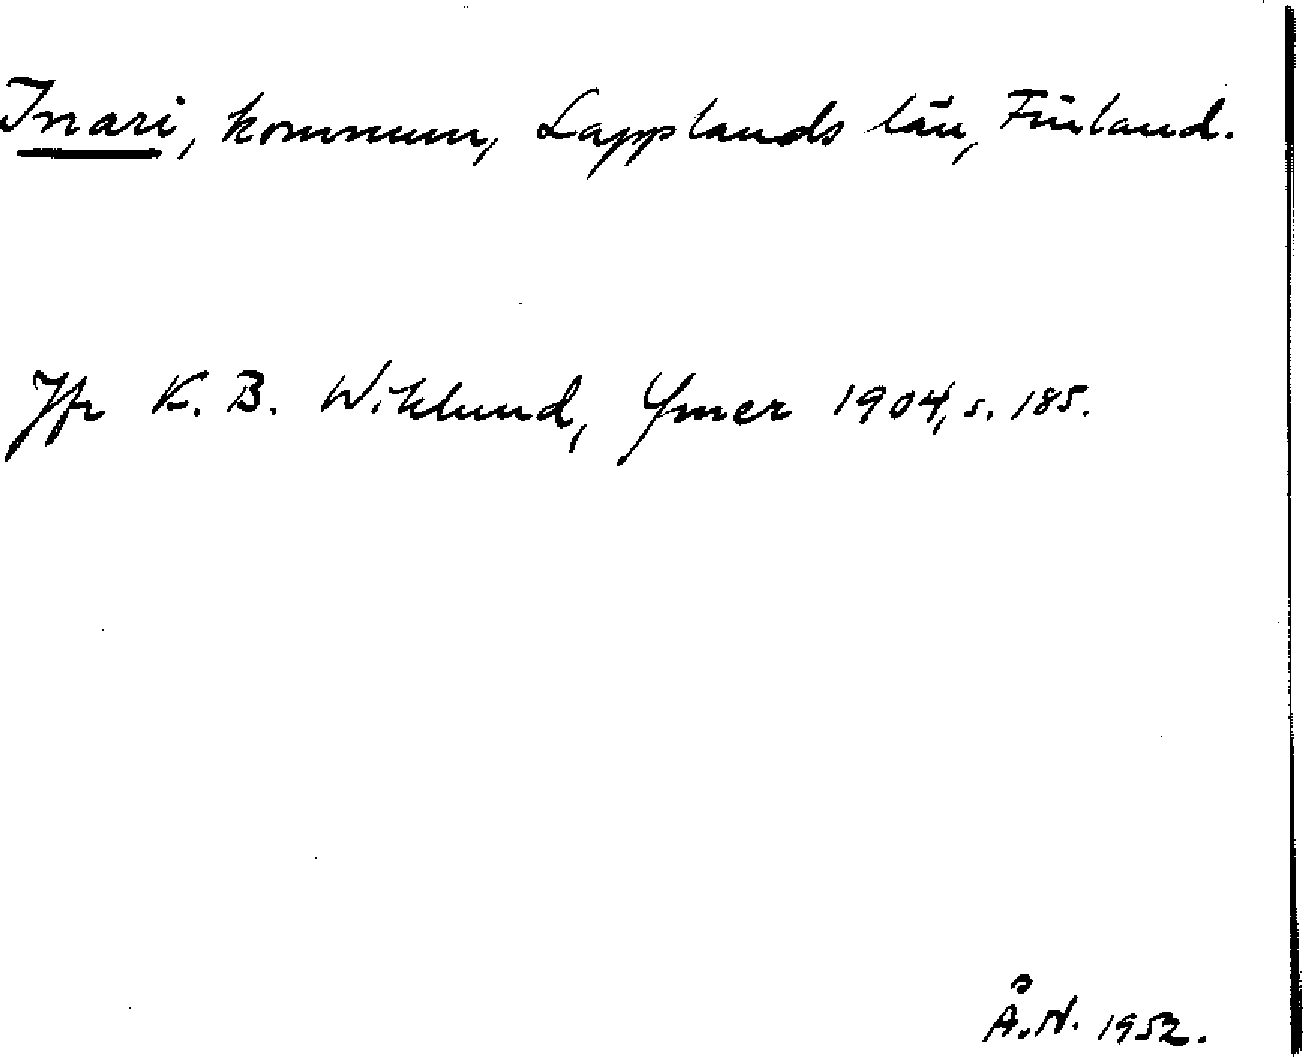 Inari, kommun, Lapplands län, Finland.
Jfr K. B. Wiklund, Ymer 1904, s. 185.
Å. N. 1952.